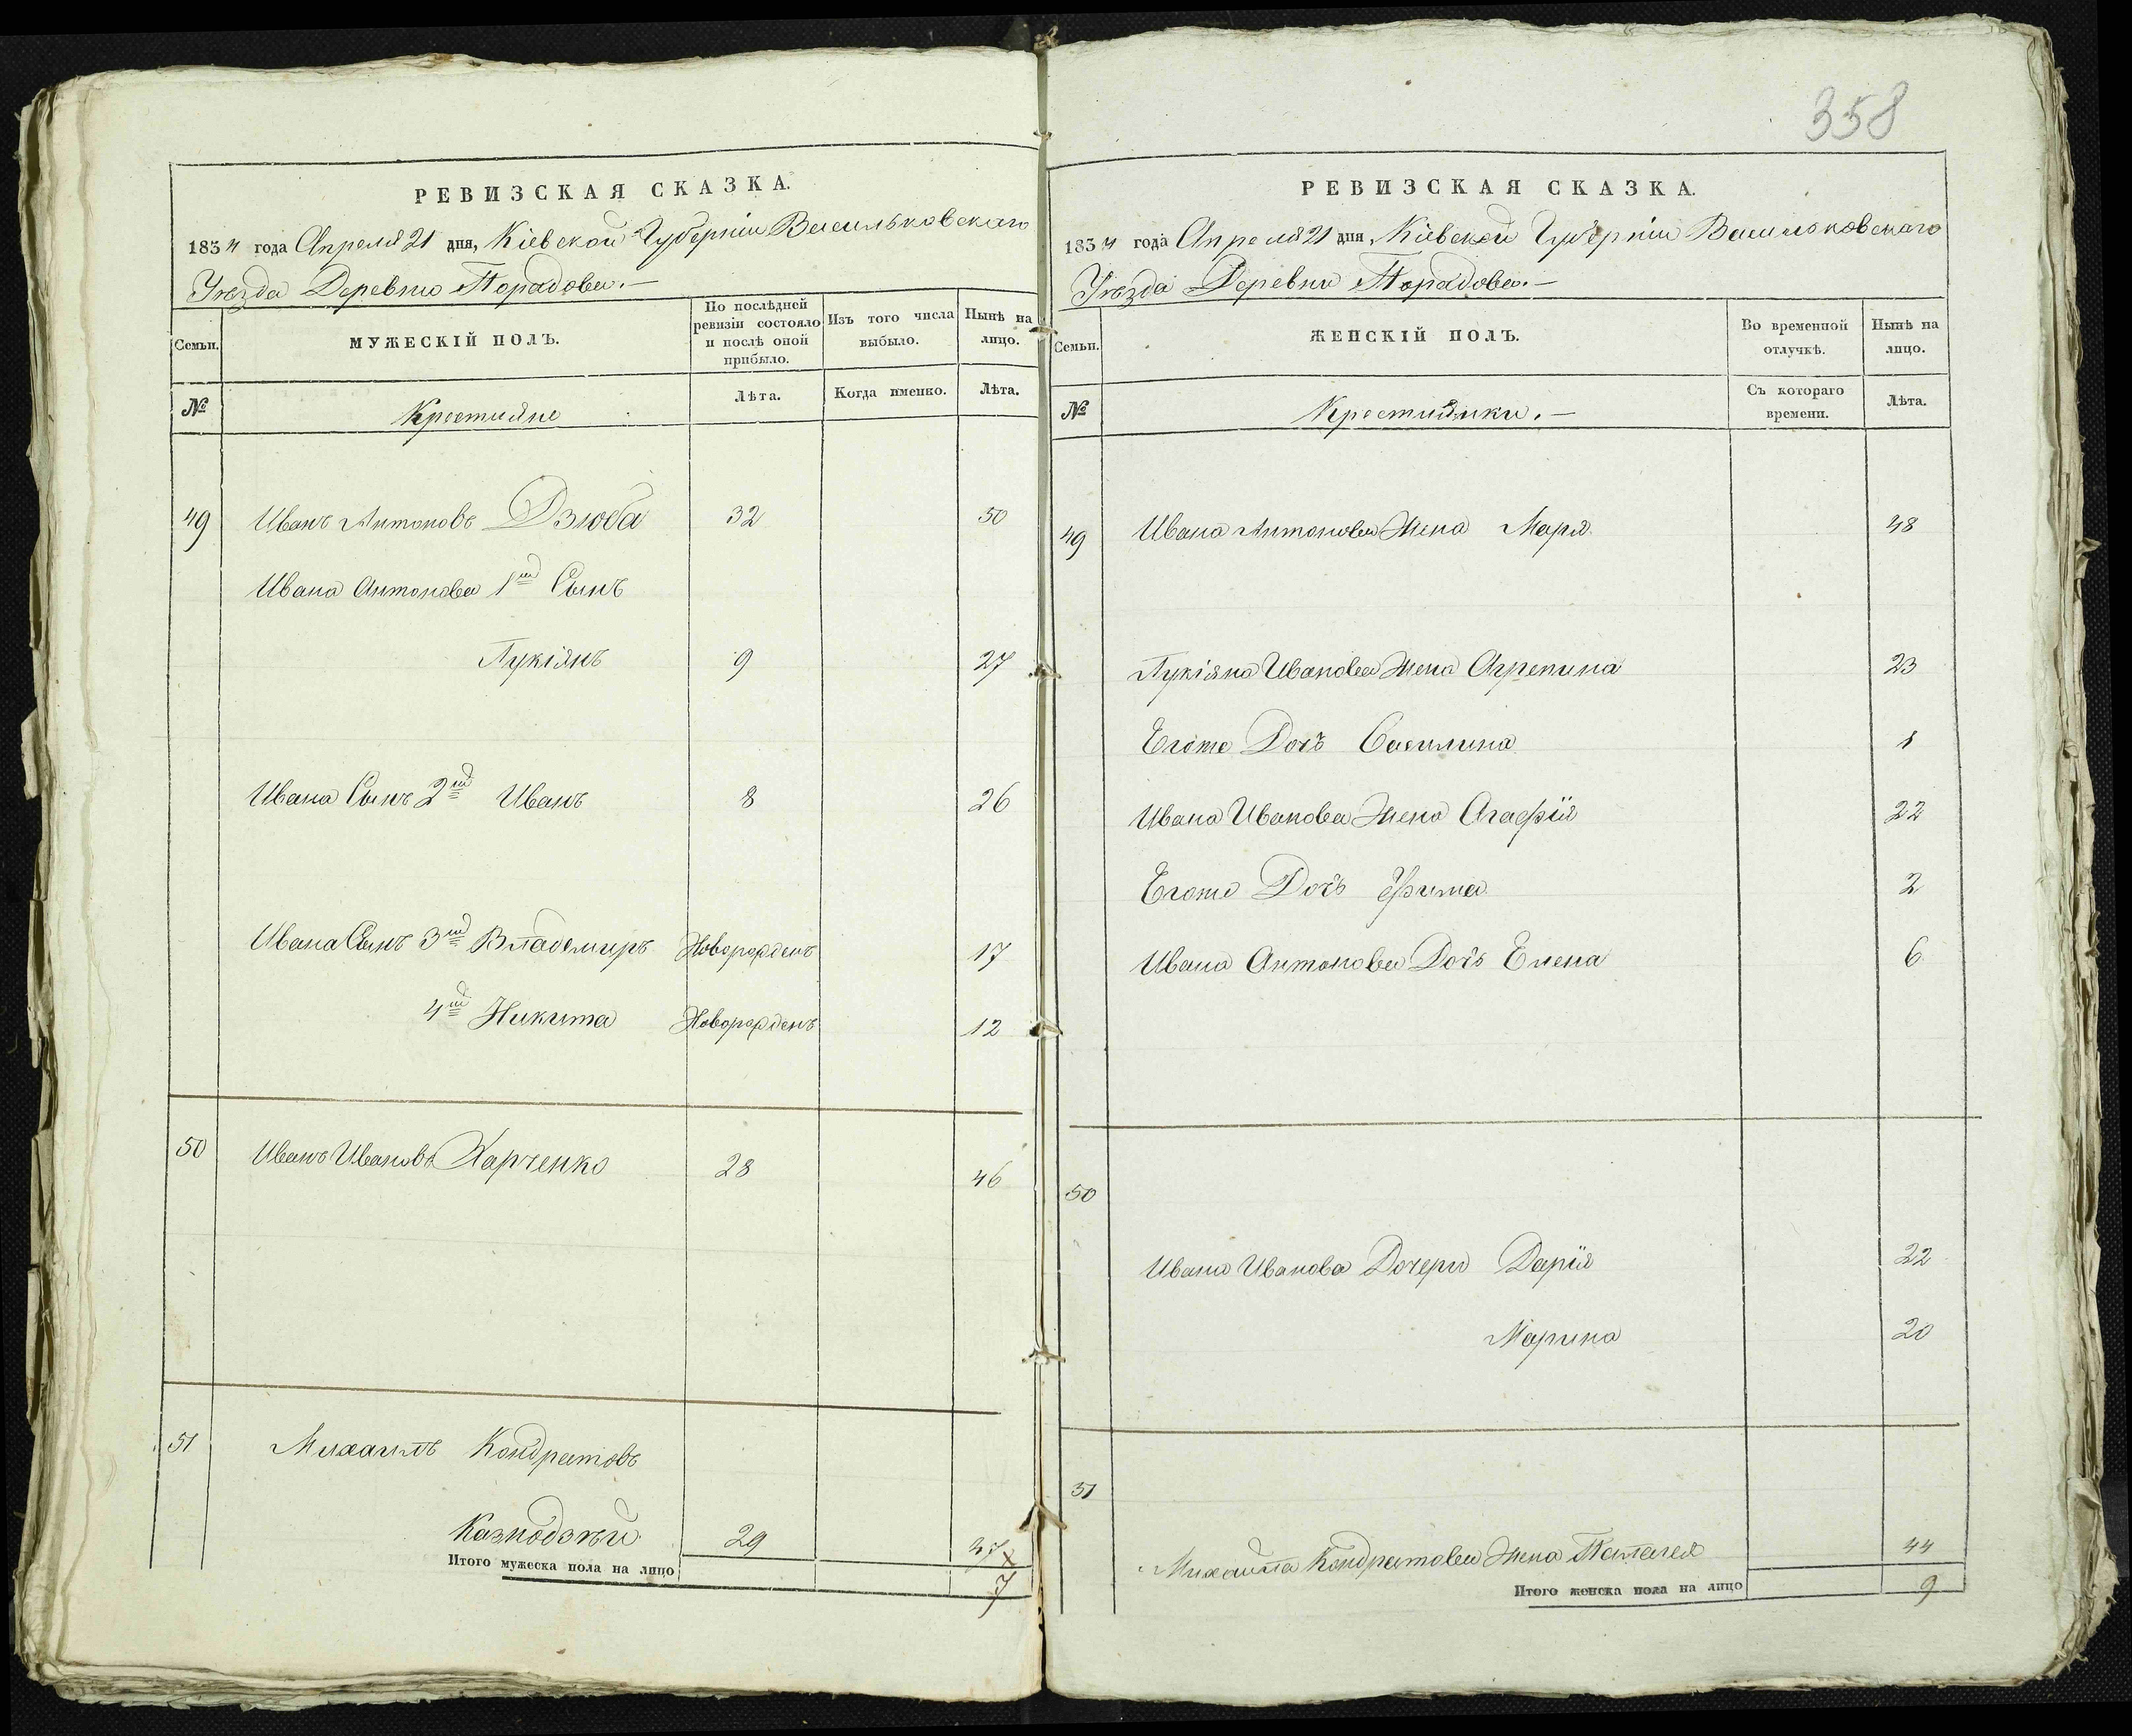 РЕВИЗСКАЯ СКАЗКА.
1834 года Апреля 21 дня, Кіевской Губерніи Васильковскаго
Уѣзда Деревни Порадовки.—
Семьи.
МУЖЕСКІЙ ПОЛЪ.
По послѣдней ревизіи состояло и послѣ оной прибыло.
Изъ того числа выбыло.
Нынѣ на лицо.
№
Крестияне
Лѣта.
Когда именно.
Лѣта.
49 Иванъ Антоновъ Дзюба 32 50
Ивана Антонова 1й Сынъ
Лукіянъ 9 27
Ивана Сынъ 2й Иванъ 8 26
Ивана Сынъ 3й Владемиръ Новорожденъ 17
4й Никита Новорожденъ 12
50 Иванъ Ивановъ Харченко 28 46
51 Михаилъ Кондратовъ
Казнодзѣй 29 47
Итого мужеска пола на лицо 7
358
РЕВИЗСКАЯ СКАЗКА.
1834 года Апреля 21 дня, Кіевской Губерніи Васильковскаго
Уѣзда Деревни Порадовки.—
Семьи.
ЖЕНСКІЙ ПОЛЪ.
Во временной отлучкѣ.
Нынѣ на лицо.
№
Крестиянки.—
Съ котораго времени.
Лѣта.
49 Ивана Антонова Жена Маря 48
Лукіяна Иванова Жена Агрепина 23
Егоже Дочь Василина 1
Ивана Иванова Жена Агафія 22
Егоже Дочь 2
Ивана Антонова Дочь Елена 6
50
Ивана Иванова Дочери Дарія 22
Марина 20
51
Михайла Кондратова Жена Пелагея 44
Итого женска пола на лицо 9